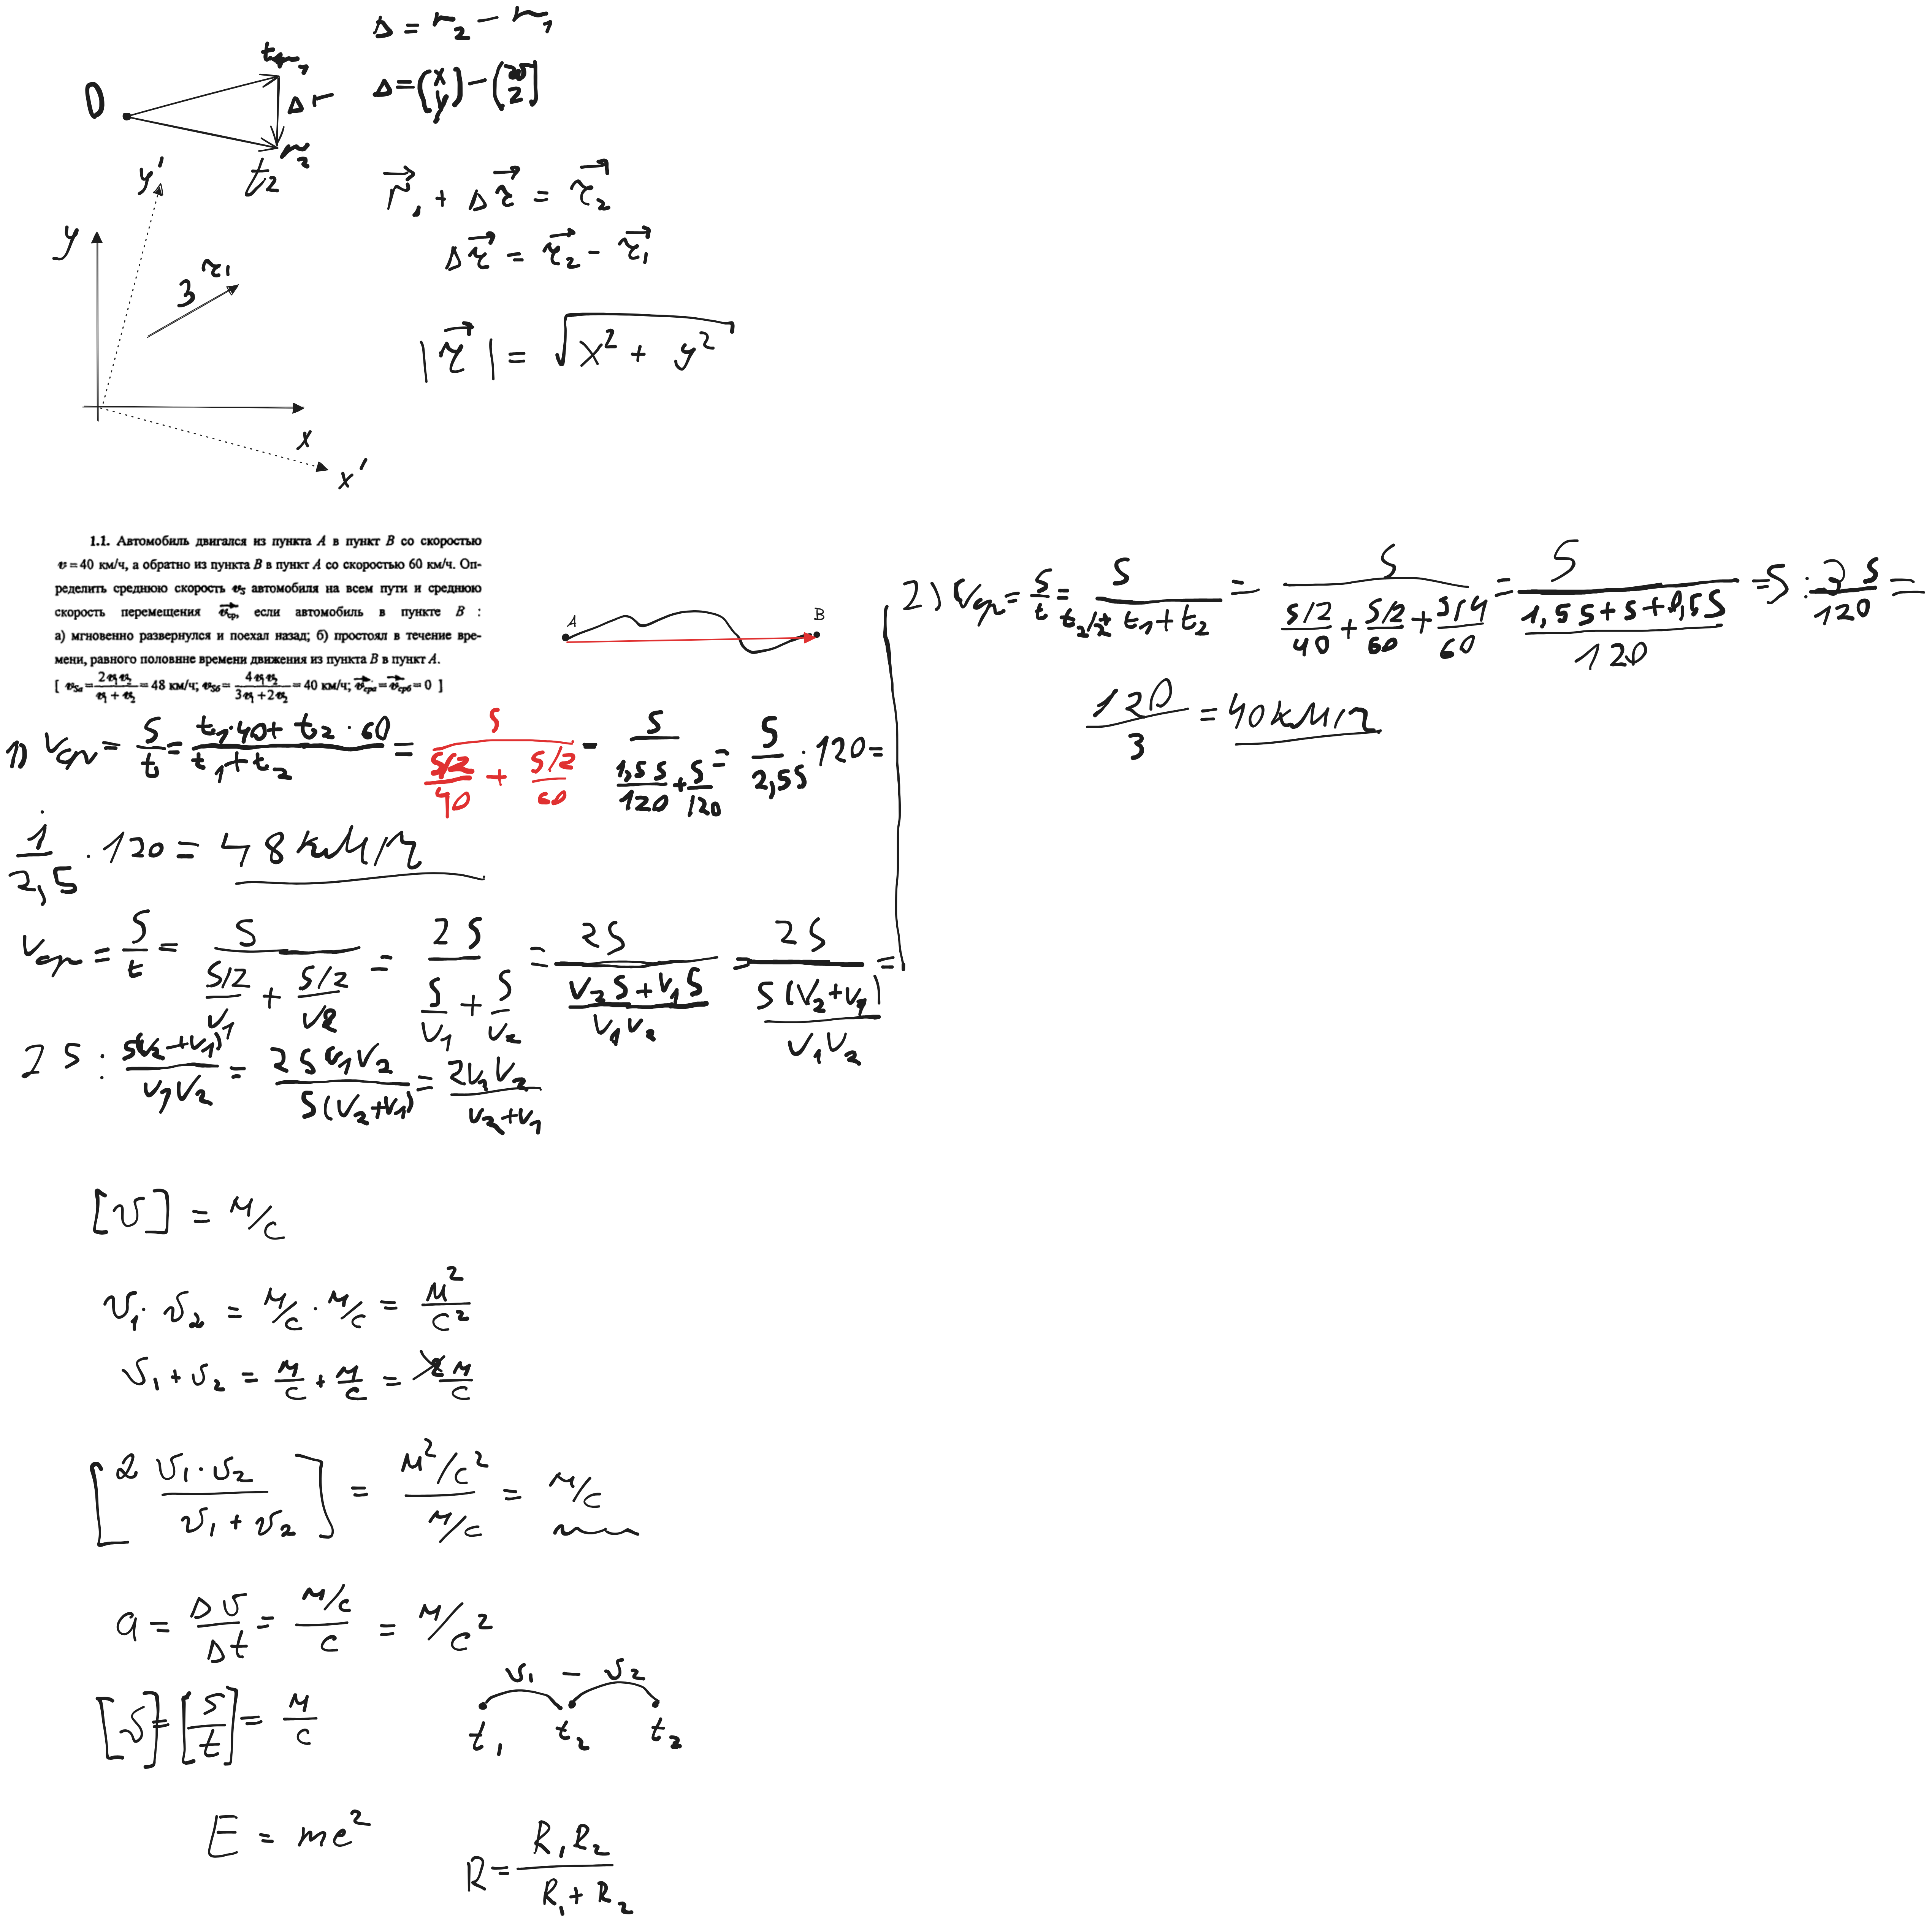 Δ = r₂ − r₁
Δ = (x y) − (
0
Δr
r₂
t₂
r⃗₁ + Δr⃗ = r⃗₂
Δr⃗ = r⃗₂ − r⃗₁
y'
y
3 r₁
|r⃗| = √(x² + y²)
x
x'
1.1. Автомобиль двигался из пункта A в пункт B со скоростью
v = 40 км/ч, а обратно из пункта B в пункт A со скоростью 60 км/ч. Оп-
ределить среднюю скорость v_S автомобиля на всем пути и среднюю
скорость перемещения v⃗_ср, если автомобиль в пункте B :
а) мгновенно развернулся и поехал назад; б) простоял в течение вре-
мени, равного половине времени движения из пункта B в пункт A.
[ v_Sa = 2v₁v₂/(v₁ + v₂) = 48 км/ч; v_Sб = 4v₁v₂/(3v₁ + 2v₂) = 40 км/ч; v⃗_срa = v⃗_срб = 0 ]
A B
1) Vср = S/t = (t₁·40 + t₂·60)/(t₁ + t₂) = S/((S/2)/40 + (S/2)/60) = S/(1,5S/120 + S/120) = S/2,5S · 120 =
1/2,5 · 120 = 48 км/ч
Vср = S/t = S/((S/2)/V₁ + (S/2)/V₂) = 2S/(S/V₁ + S/V₂) = 2S/((V₂S + V₁S)/(V₁V₂)) = 2S/(S(V₂+V₁)/(V₁V₂)) =
2S : S(V₂+V₁)/(V₁V₂) = 2SV₁V₂/(S(V₂+V₁)) = 2V₁V₂/(V₂+V₁)
2) Vср = S/t = S/(t₂/2 + t₁ + t₂) = S/((S/2)/40 + (S/2)/60 + (S/4)/60) = S/((1,5S + S + 0,5S)/120) = S : 3S/120 =
120/3 = 40 км/ч
[v] = м/с
v₁ · v₂ = м/с · м/с = м²/с²
v₁ + v₂ = м/с + м/с = м/с
[2 v₁·v₂/(v₁ + v₂)] = (м²/с²)/(м/с) = м/с
a = Δv/Δt = (м/с)/с = м/с²
v₁ − v₂
[v] = [S/t] = м/с
t₁ t₂ t₃
E = mc²
R = R₁R₂/(R₁ + R₂)